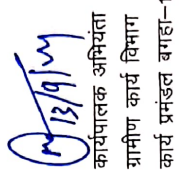 13/9/17
कार्यपालक अभियंता
ग्रामीण कार्य विभाग
कार्य प्रमंडल बगहा-1